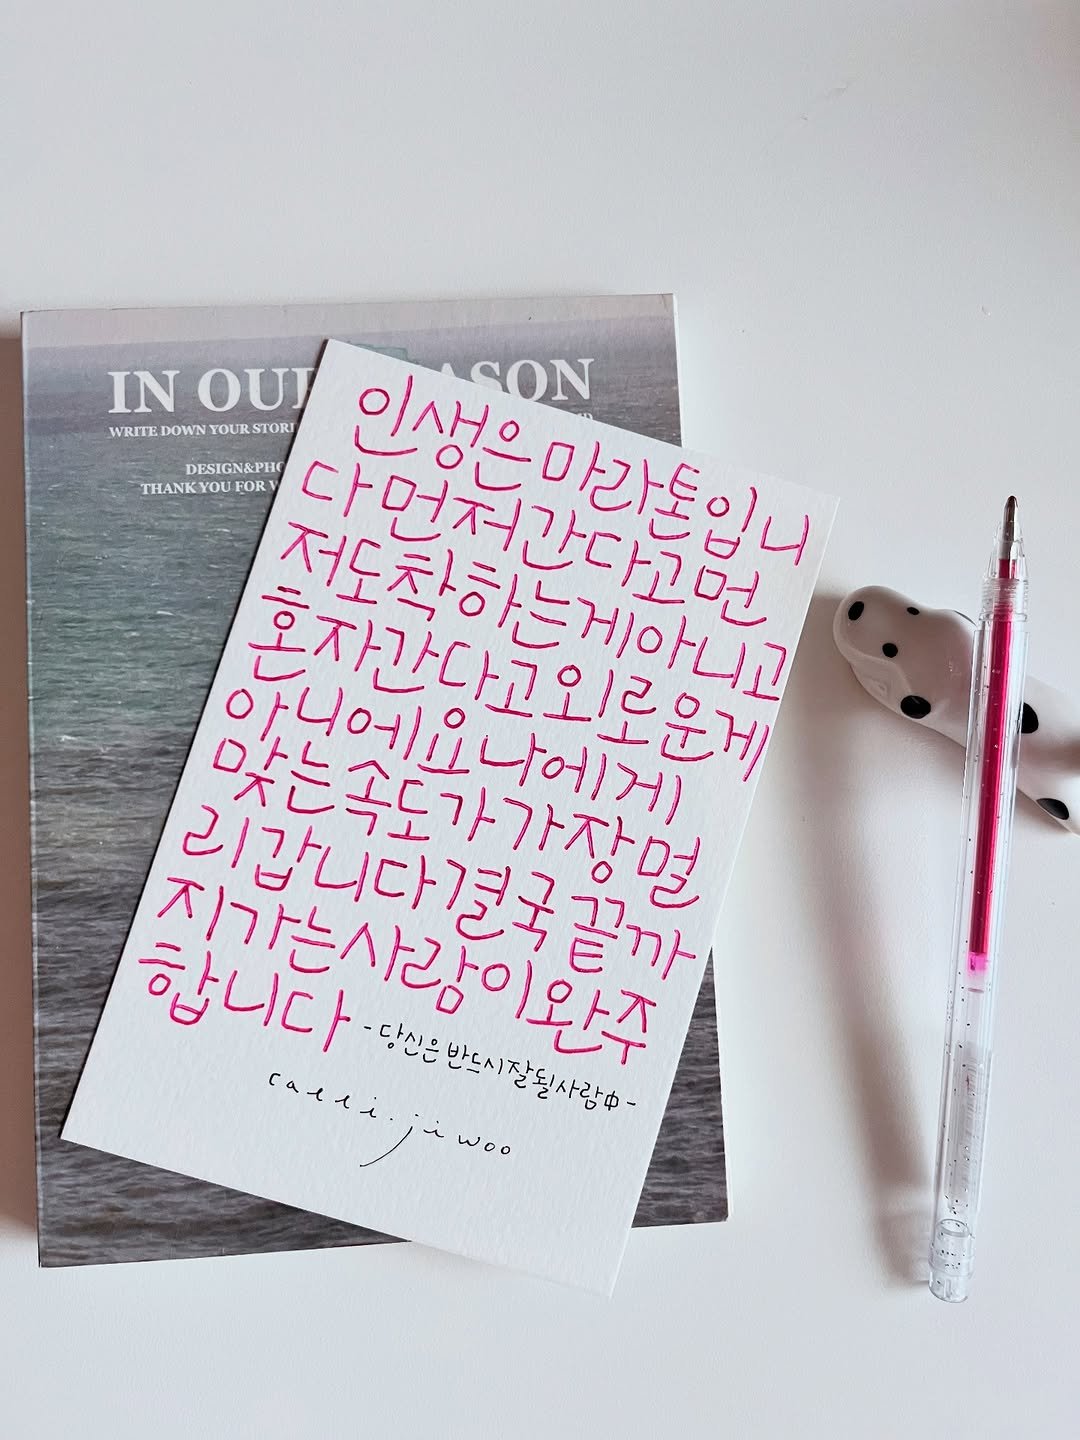 IN OUR ASON
WRITE DOWN YOUR STORI
DESIGN&PHO
THANK YOU FOR W
인생은 마라톤입니
다 먼저 간다고 먼
저 도착하는게 아니고
혼자 간다고 외로운게
아니에요 나에게
맞는 속도가 가장 멀
리 갑니다 결국 끝까
지 가는 사람이 완주
합니다
- 당신은 반드시 잘될 사람 中 -
calli.jiwoo